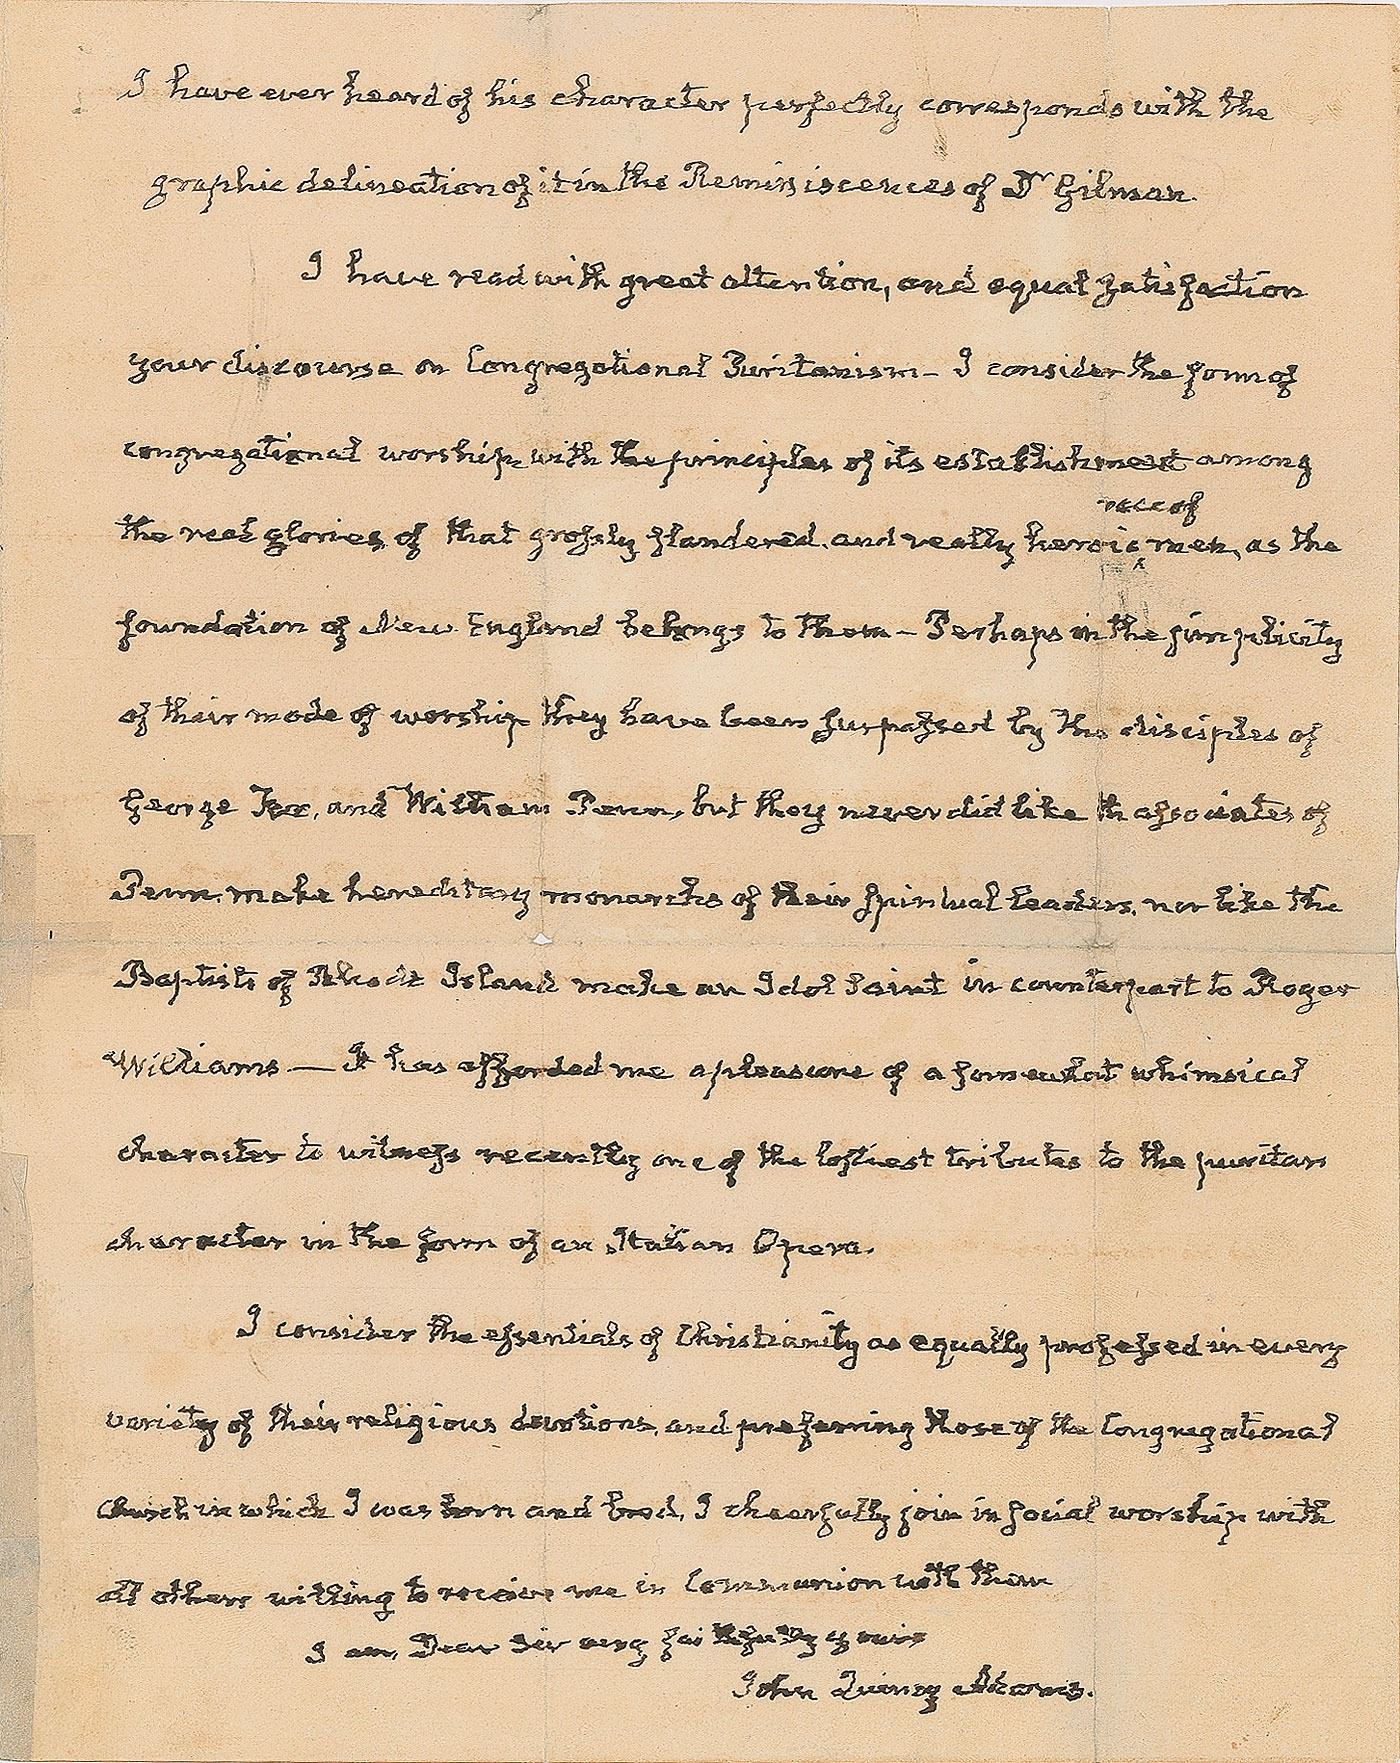 I have ever heard of his character perfectly corresponds with the
graphic delineation of it in the Reminiscences of Dr Gilman.
I have read with great attention, and equal satisfaction
your discourse on Congregational Puritanism – I consider the form of
congregational worship, with the principles of its establishment among
race of
the real glories of that grossly slandered, and really heroic ‸ men, as the
foundation of New England belongs to them – Perhaps in the simplicity
of their mode of worship they have been surpassed by the disciples of
George Fox, and William Penn, but they never did like th associates of
Penn, make hereditary monarchs of their spiritual leaders, nor like the
Baptists of Rhode Island make an Idol Saint in counterpart to Roger
Williams — It has afforded me a pleasure of a somewhat whimsical
character to witness recently one of the loftiest tributes to the puritan
character in the form of an Italian Opera.
I consider the essentials of Christianity as equally professed in every
variety of their religious devotions, and preferring those of the Congregational
Church in which I was born and bred, I cheerfully join in social worship with
all others willing to receive me in Communion with them
I am, Dear Sir very faithfully yours
John Quincy Adams.